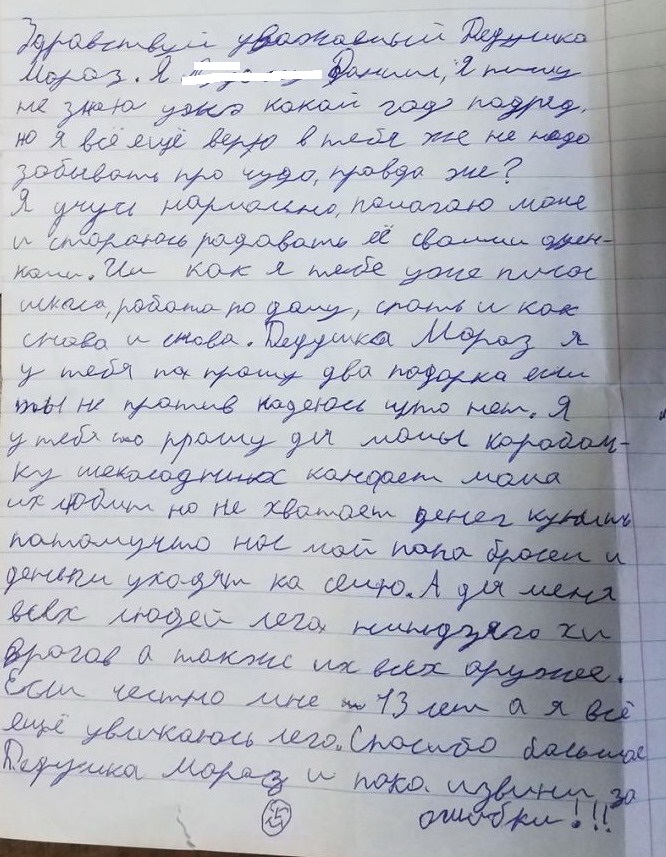 Здравствуй уважаемый Дедушка
Мороз. Я Даниил, Я пишу
не знаю уже какой год подряд,
но я всё ещё верю в тебя же не надо
забывать про чудо, правда же?
Я учусь нармально, помагаю маме
и стараюсь радавать её своими оцен-
ками. Чи как я тебе уже писал
школа, работа по дому, спать и как
снова и снова. Дедушка Мороз я
у тебя по прашу два подарка если
ты не против надеюсь что нет. Я
у тебя по прашу для мамы карабоч-
ку шекаладных канфет мама
их любит но не хватает денег купить
патомучто нас мой папа бросил и
деньги уходят на семю. А для меня
всех людей лего ниндзяго и
врагов а также их всех оружее.
Если честно мне 13 лет а я всё
ещё увликаюсь лего. Спасибо большое
Дедушка Мороз и пока извини за
ошибки!!!